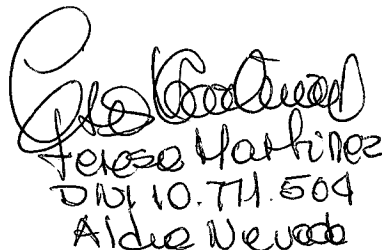 Teresa Martinez
DNI 10.771.504
Aldea Nevada